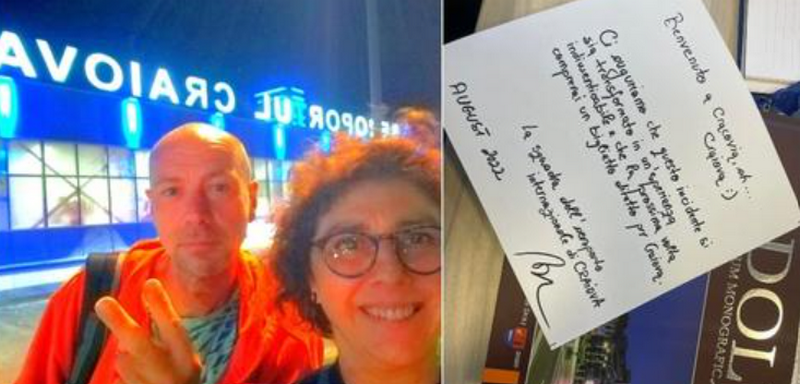 AEROPORTUL CRAIOVA
Benvenuto a Cracovia, ah...
Craiova :)
Ci auguriamo che questo incidente si
sia transformato in un'esperienza
indimenticabile e che la prossima volta
comprerai un biglietto diretto per Craiova.
La squadra dell'aeroporto
internazionale di CRAIOVA
AUGUST 2022
DOL
IM MONOGRAFIC